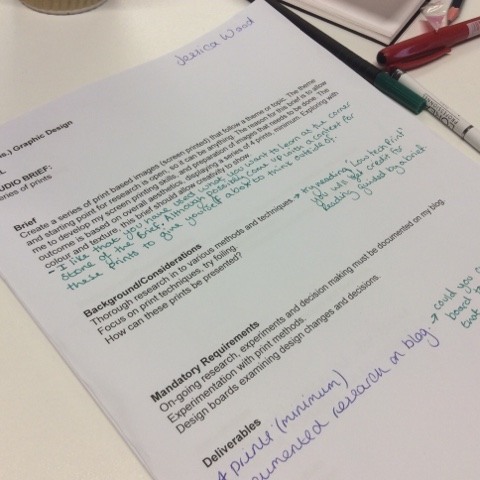 Jessica Wood
Graphic Design
BRIEF:
series of prints
Brief
Create a series of print based images (screen printed) that follow a theme or topic. The theme
and starting point for research is open, so it can be anything. The reason for this brief is to allow
me to develop my screen printing skills, and preparation of images that needs to be done. The
outcome is based on overall aesthetics, displaying a series of 4 prints, minimum. Exploring with
colour and texture, this brief should allow creativity to show.
- I like that you have used what you want to learn as the corner
stone of the Brief. Although possibly come up with a context for
these prints to give yourself a box to think outside of.
Background/Considerations
Thorough research in to various methods and techniques → try reading 'Low tech Print'
Focus on print techniques, try foiling.
How can these prints be presented?
you will get credit for
reading guided by a brief
Mandatory Requirements
On-going research, experiments and decision making must be documented on my blog.
Experimentation with print methods.
Design boards examining design changes and decisions.
→ could you
board to
Deliverables
4 prints (minimum)
research on blog